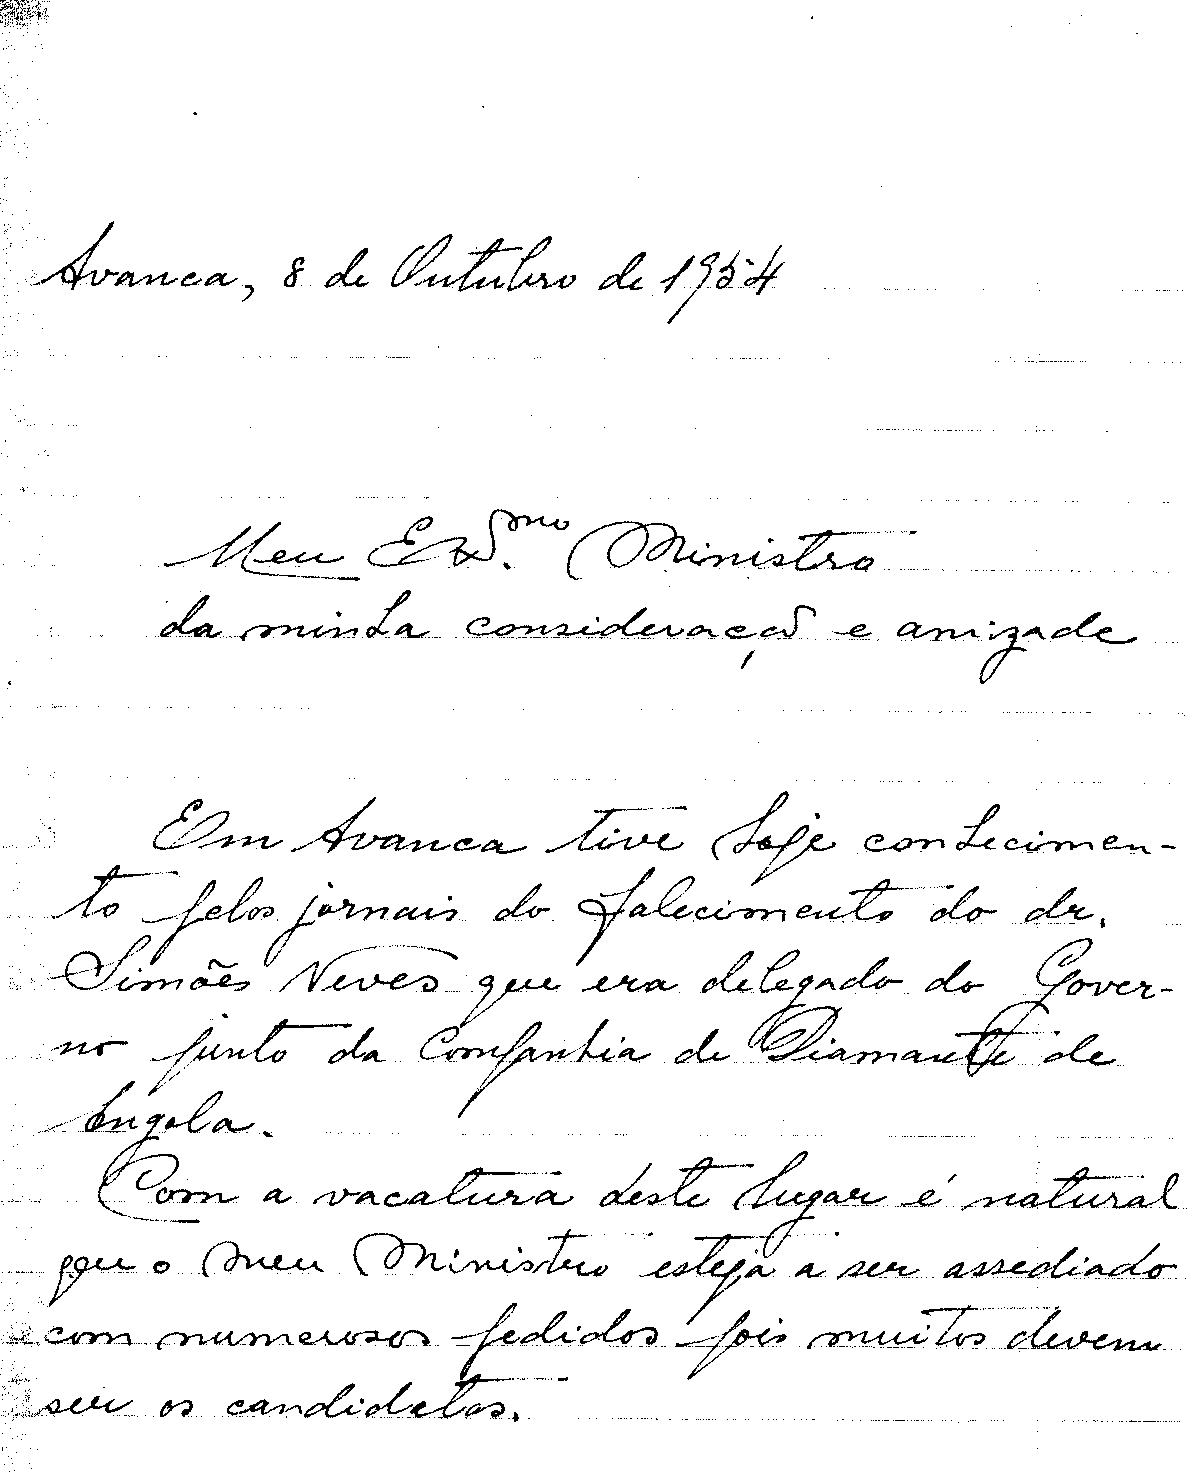 Avanca, 8 de Outubro de 1954
Meu Exmo. Ministro
da minha consideração e amizade
Em Avanca tive hoje conhecimen-
to pelos jornais do falecimento do dr.
Simões Neves que era delegado do Gover-
no junto da Companhia de Diamante de
Angola.
Com a vacatura deste lugar é natural
que o meu Ministro esteja a ser assediado
com numerosos pedidos pois muitos devem
ser os candidatos.